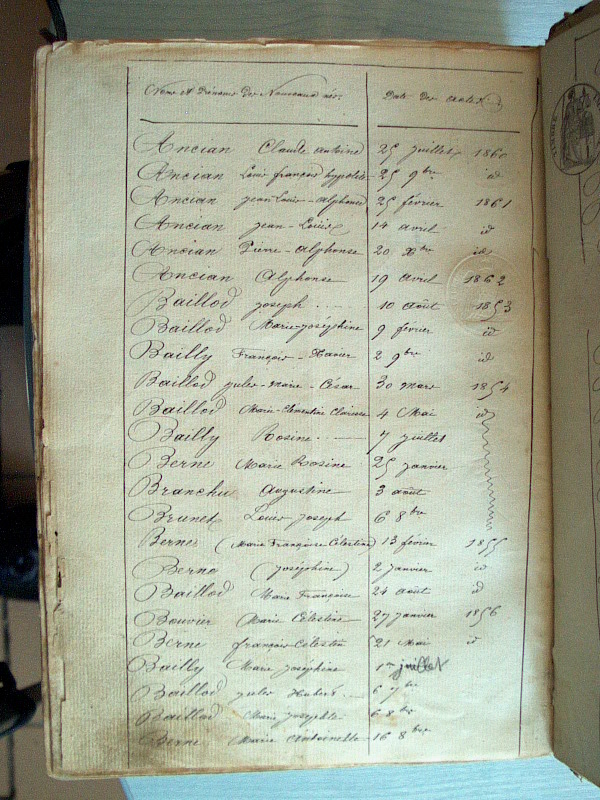 Noms et Prénoms des Nouveaux nés. Date des actes
Ancian Claude antoine 25 juillet 1860
Ancian Louis françois hypolite 25 9bre id
Ancian jean Louis - alphonse 25 février 1861
Ancian jean - Louis 14 avril id
Ancian Pierre - Alphonse 20 Xbre id
Ancian Alphonse 19 Avril 1862
Baillod joseph 10 août 1853
Baillod Marie joséphine 9 février id
Bailly François - Xavier 2 9bre id
Baillod jules - marie - César 30 mars 1854
Baillod Marie - Clémentine Clarisse 4 Mai id
Bailly Rosine 7 juillet
Berne Marie Rosine 25 janvier
Branchu Augustine 3 août
Brunet Louis joseph 6 8bre
Berne (Marie Françoise Célestine) 13 février 1855
Berne (Joséphine) 2 janvier id
Baillod Marie Françoise 24 août id
Bouvier Marie Célestine 27 janvier 1856
Berne françois Célestin 21 Mai id
Bailly Marie joséphine 1er juillet
Baillod jules Hubert 6 7bre
Baillod Marie joséphte 6 8bre
Berne Marie Antoinette 16 8bre